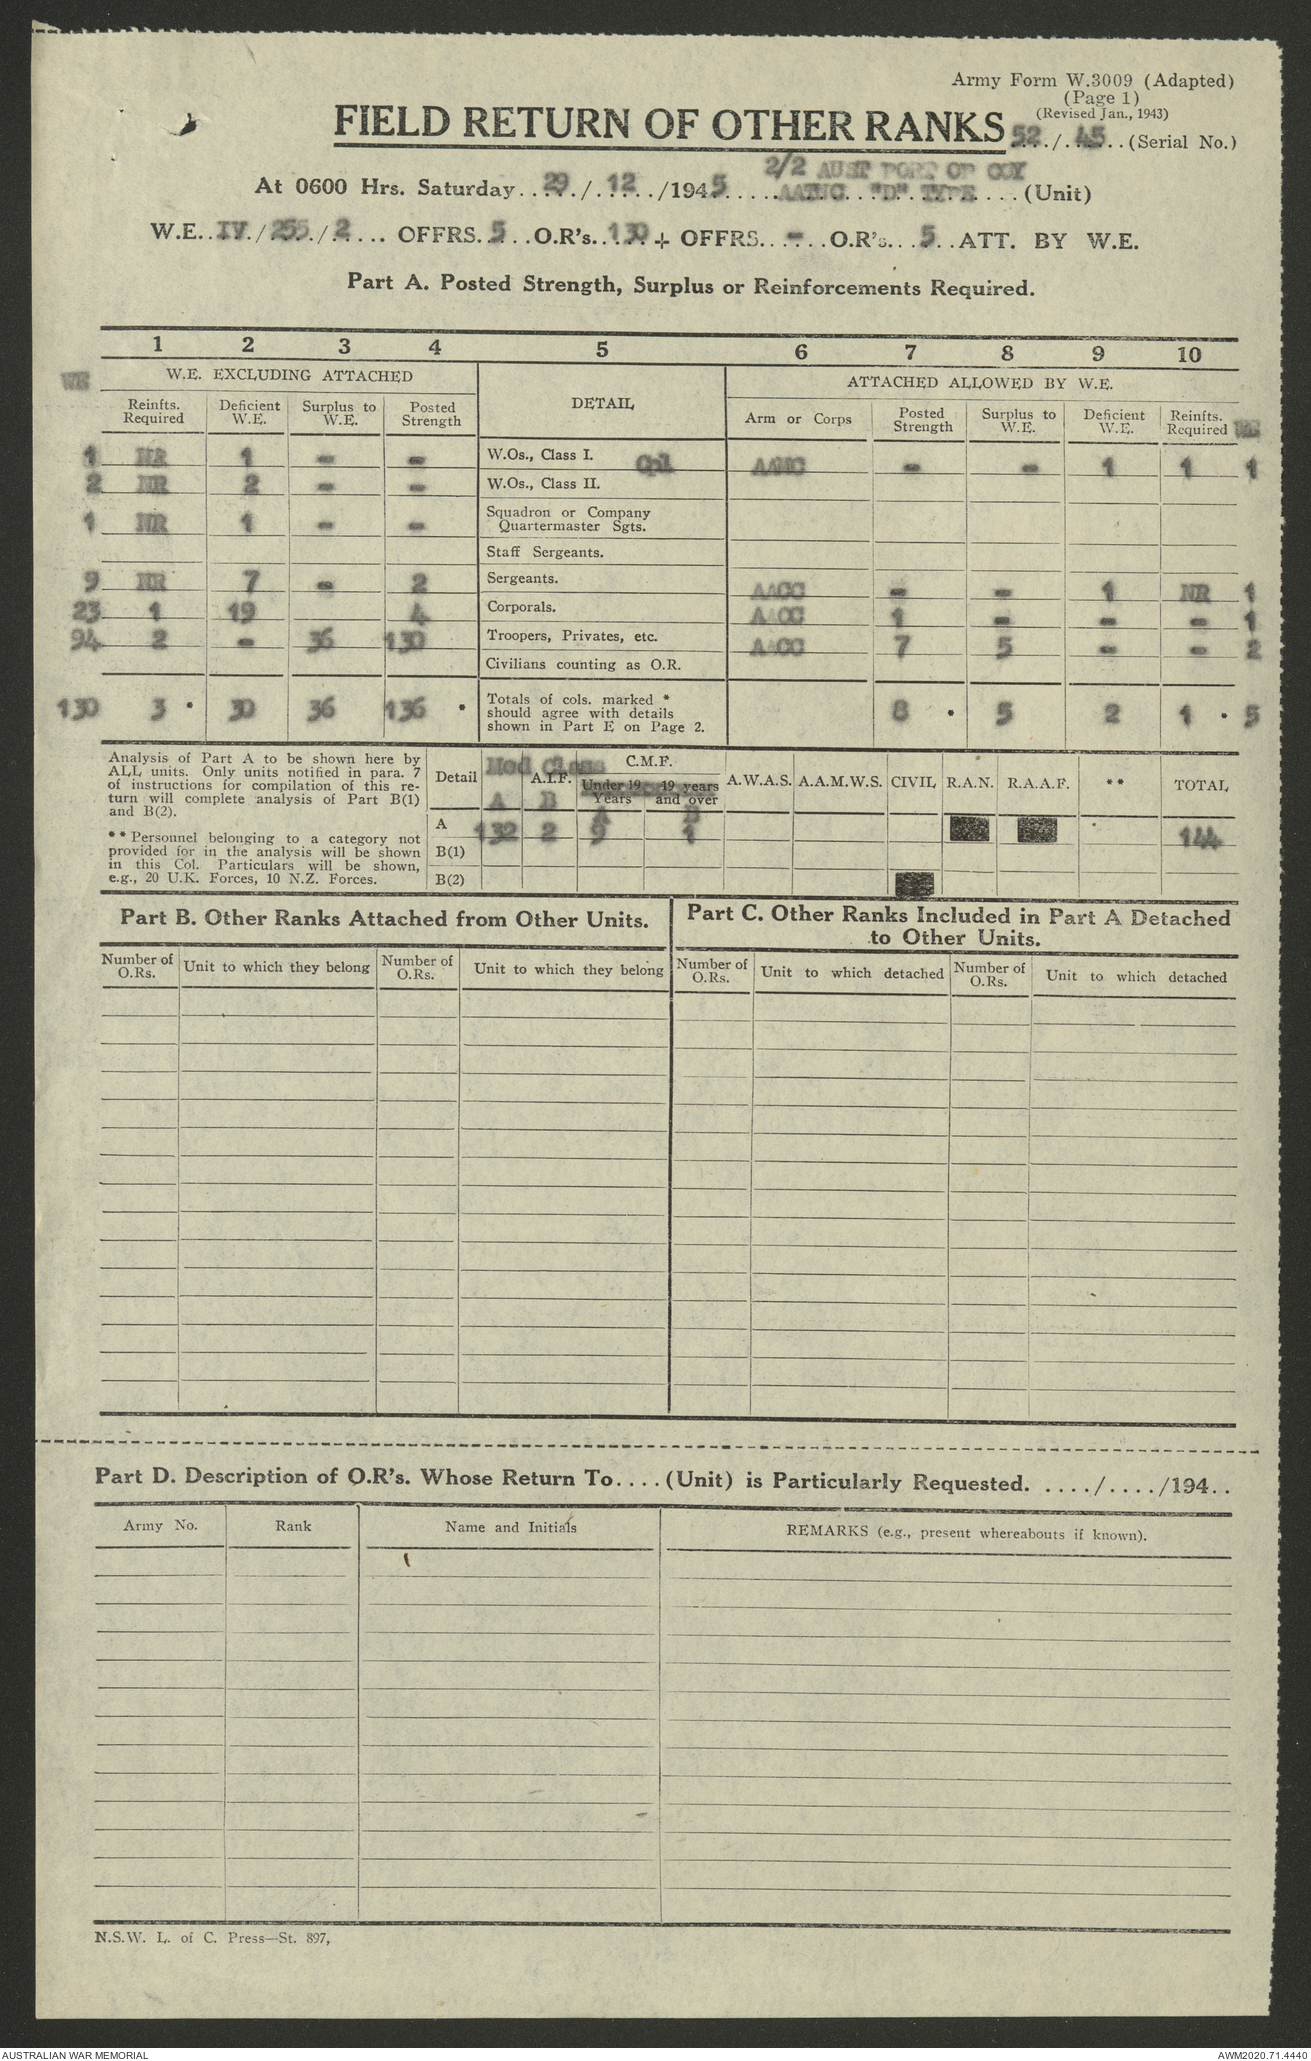 Army Form W.3009 (Adapted)
(Page 1)
(Revised Jan., 1943)
FIELD RETURN OF OTHER RANKS 52/45 (Serial No.)
2/2 AUST PORT OP COY
At 0600 Hrs. Saturday 29/12/1945 "D" TYPE (Unit)
W.E. IV/255/2 OFFRS. 5 O.R's. 130 + OFFRS. - O.R's. 5 ATT. BY W.E.
Part A. Posted Strength, Surplus or Reinforcements Required.
1 2 3 4 5 6 7 8 9 10
WE W.E. EXCLUDING ATTACHED DETAIL ATTACHED ALLOWED BY W.E.
Reinfts. Required Deficient W.E. Surplus to W.E. Posted Strength Arm or Corps Posted Strength Surplus to W.E. Deficient W.E. Reinfts. Required
1 NR 1 - - W.Os., Class I. Cpl AAMC - - 1 1 1
2 NR 2 - - W.Os., Class II.
1 NR 1 - - Squadron or Company Quartermaster Sgts.
Staff Sergeants.
9 NR 7 - 2 Sergeants. AACC - - 1 NR 1
23 1 19 4 Corporals. AACC 1 - - - 1
94 2 - 36 130 Troopers, Privates, etc. AACC 7 5 - - 2
Civilians counting as O.R.
130 3 * 30 36 136 * Totals of cols. marked * should agree with details shown in Part E on Page 2. 8 * 5 2 1 * 5
Analysis of Part A to be shown here by
ALL units. Only units notified in para. 7
of instructions for compilation of this re-
turn will complete analysis of Part B(1)
and B(2).
** Personnel belonging to a category not
provided for in the analysis will be shown
in this Col. Particulars will be shown,
e.g., 20 U.K. Forces, 10 N.Z. Forces.
Med Class
Detail A.I.F. C.M.F. Under 19 Years 19 years and over A.W.A.S. A.A.M.W.S. CIVIL R.A.N. R.A.A.F. ** TOTAL
A B A B
A 132 2 9 1 144
B(1)
B(2)
Part B. Other Ranks Attached from Other Units.
Part C. Other Ranks Included in Part A Detached
to Other Units.
Number of O.Rs. Unit to which they belong Number of O.Rs. Unit to which they belong Number of O.Rs. Unit to which detached Number of O.Rs. Unit to which detached
Part D. Description of O.R's. Whose Return To.... (Unit) is Particularly Requested. ..../..../194..
Army No. Rank Name and Initials REMARKS (e.g., present whereabouts if known).
N.S.W. L. of C. Press—St. 897,
AUSTRALIAN WAR MEMORIAL AWM2020.71.4440